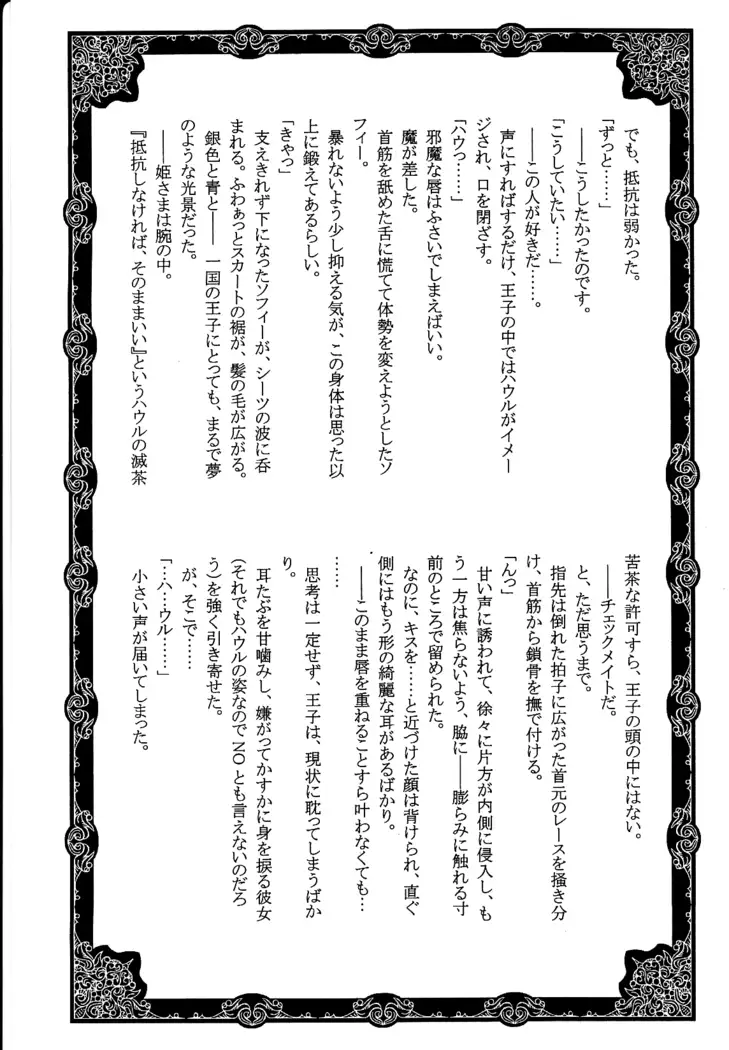 でも、抵抗は弱かった。
「ずっと……」
――こうしたかったのです。
「こうしていたい……」
――この人が好きだ……。
声にすればするだけ、王子の中ではハウルがイメー
ジされ、口を閉ざす。
「ハウっ……」
邪魔な唇はふさいでしまえばいい。
魔が差した。
首筋を舐めた舌に慌てて体勢を変えようとしたソ
フィー。
暴れないよう少し抑える気が、この身体は思った以
上に鍛えてあるらしい。
「きゃっ」
支えきれず下になったソフィーが、シーツの波に呑
まれる。ふわぁっとスカートの裾が、髪の毛が広がる。
銀色と青と―― 一国の王子にとっても、まるで夢
のような光景だった。
――姫さまは腕の中。
『抵抗しなければ、そのままいい』というハウルの滅茶
苦茶な許可すら、王子の頭の中にはない。
――チェックメイトだ。
と、ただ思うまで。
指先は倒れた拍子に広がった首元のレースを掻き分
け、首筋から鎖骨を撫で付ける。
「んっ」
甘い声に誘われて、徐々に片方が内側に侵入し、も
う一方は焦らないよう、脇に――膨らみに触れる寸
前のところで留められた。
なのに、キスを……と近づけた顔は背けられ、直ぐ
側にはもう形の綺麗な耳があるばかり。
――このまま唇を重ねることすら叶わなくても…
……
思考は一定せず、王子は、現状に耽ってしまうばか
り。
耳たぶを甘噛みし、嫌がってかすかに身を捩る彼女
(それでもハウルの姿なのでNOとも言えないのだろ
う)を強く引き寄せた。
が、そこで……
「…ハ…ウル……」
小さい声が届いてしまった。